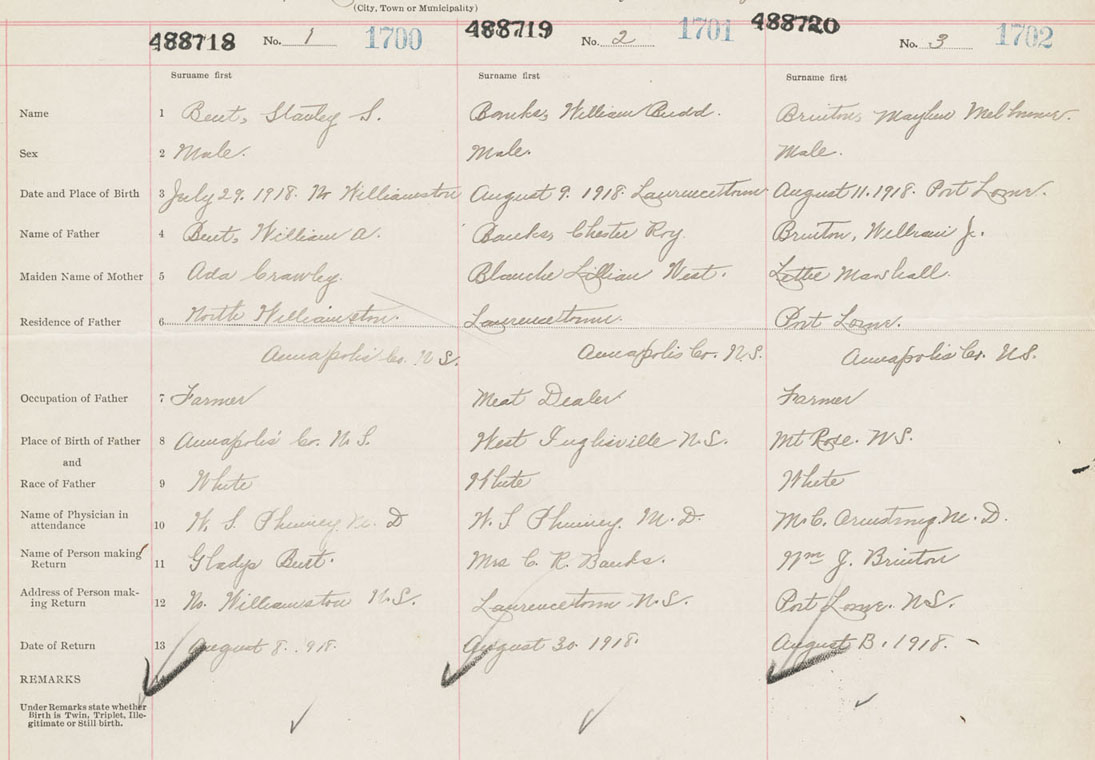 (City, Town or Municipality)
488718 No. 1 1700 488719 No. 2 1701 488720 No. 3 1702
Surname first Surname first Surname first
Name 1 Bent, Stanley S. Banks, William Budd. Brinton, Mayhew
Sex 2 Male. Male. Male.
Date and Place of Birth 3 July 29. 1918. No Williamston August 9. 1918. Laurencetown August 11. 1918. Port Lorne.
Name of Father 4 Bent, William A. Banks, Chester Roy. Brinton, William J.
Maiden Name of Mother 5 Ada Crawley. Blanche Lillian West. Lottie Marshall.
Residence of Father 6 North Williamston. Laurencetown. Port Lorne.
Annapolis Co. N.S. Annapolis Co. N.S. Annapolis Co. N.S.
Occupation of Father 7 Farmer Meat Dealer Farmer
Place of Birth of Father 8 Annapolis Co. N.S. West Inglisville N.S. Mt Rose. N.S.
and
Race of Father 9 White White White
Name of Physician in
attendance 10 W. S. Phinney M. D W. S Phinney. M. D. M. C. Armstrong M. D.
Name of Person making
Return 11 Gladys Bent. Mrs C. R. Banks. Wm J. Brinton
Address of Person mak-
ing Return 12 No. Williamston N.S. Laurencetown N.S. Port Lorne. N.S.
Date of Return 13 August 8. 918. August 30 1918. August 1918.
REMARKS
Under Remarks state whether
Birth is Twin, Triplet, Ille-
gitimate or Still birth.